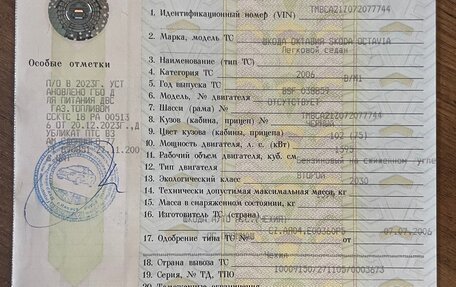 Особые отметки
П/О В 2023Г. УСТ
АНОВЛЕНО ГБО Д
ЛЯ ПИТАНИЯ ДВС
ГАЗ.ТОПЛИВОМ
ССКТС 18 РА 00513
6 ОТ 20.12.2023Г. Д
УБЛИКАТ ПТС ВЗ
1. Идентификационный номер (VIN) TMBCA21Z072077744
2. Марка, модель ТС ШКОДА ОКТАВИЯ SKODA OCTAVIA
Легковой седан
3. Наименование (тип ТС)
4. Категория ТС 2006 В/М1
5. Год выпуска ТС
6. Модель, № двигателя BSF 038859
7. Шасси (рама) № ОТСУТСТВУЕТ
8. Кузов (кабина, прицеп) №
9. Цвет кузова (кабины, прицепа) ЧЕРНЫЙ
10. Мощность двигателя, л. с. (кВт) 102 (75)
11. Рабочий объем двигателя, куб. см. 1595
12. Тип двигателя Бензиновый на сжиженном
13. Экологический класс ВТОРОЙ
14. Технически допустимая максимальная масса, кг 2030
15. Масса в снаряженном состоянии, кг
16. Изготовитель ТС (страна)
17. Одобрение типа ТС № 07.07.2006
Чехия
18. Страна вывоза ТС
19. Серия, № ТД, ТПО
20. Таможенные ограничения